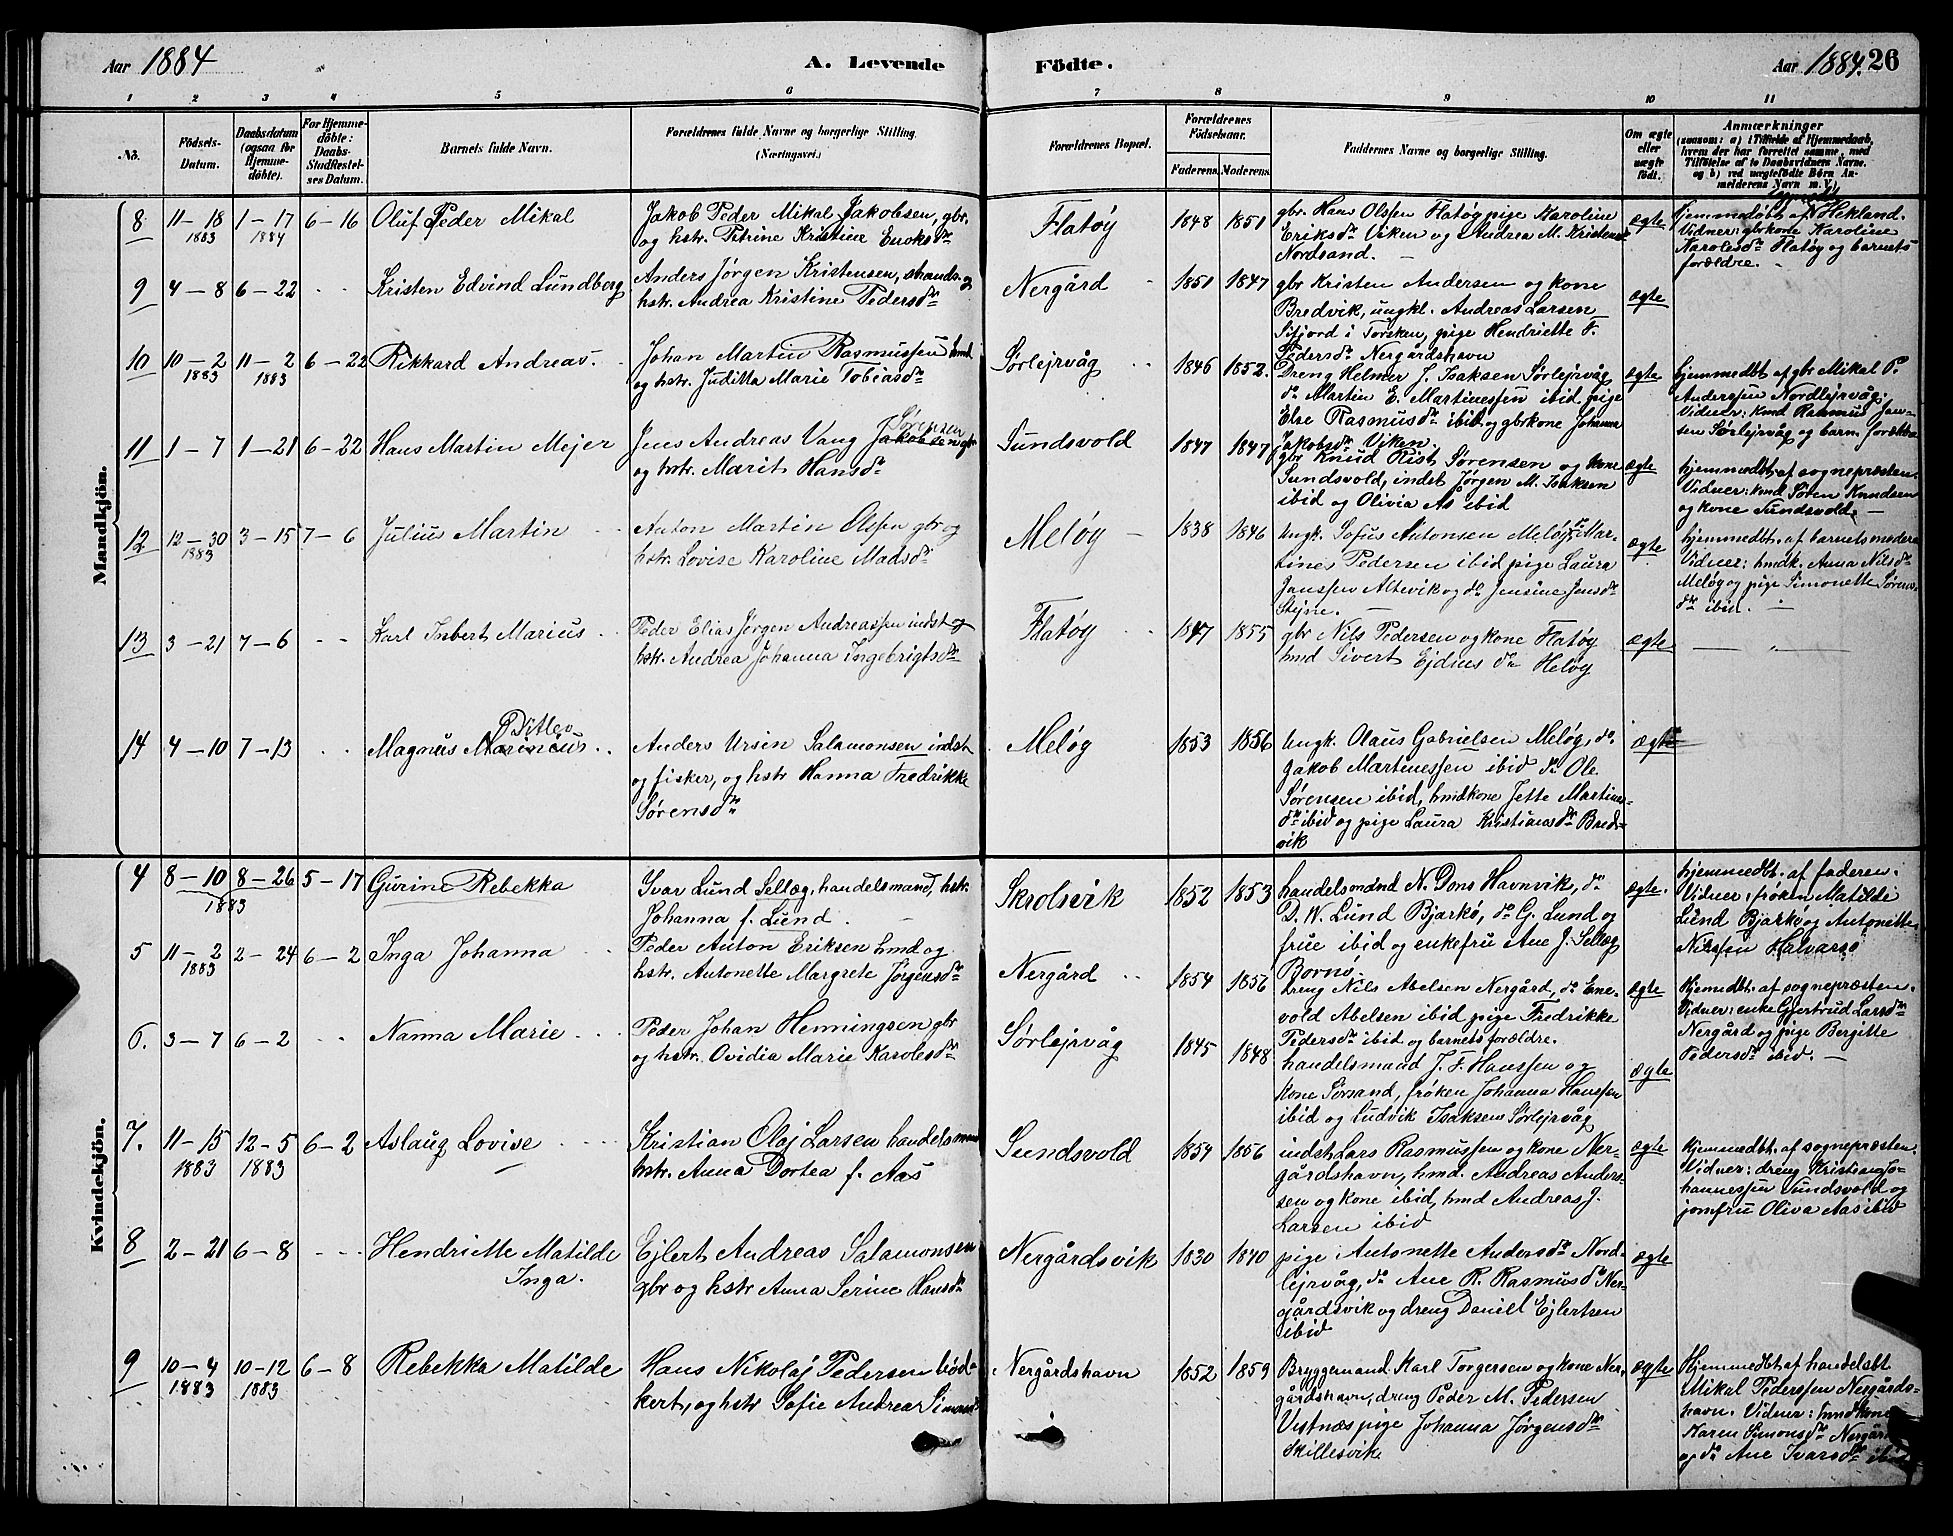 Aar 1884 A. Levende Födte. Aar 1884. 26
1 2 3 4 5 6 7 8 9 10 11
No. Födsels-Datum. Daabsdatum (ogsaa for Hjemmedöbte). For Hjemmedöbte: Daabs-Stadfestelses Datum. Barnets fulde Navn. Forældrenes fulde Navne og borgerlige Stilling. (Næringsvei.) Forældrenes Bopæl. Forældrenes Födselsaar. Faderens. Moderens. Faddernes Navne og borgerlige Stilling. Om ægte eller uægte födt.
Anmærkninger
(saasom: a) i Tilfælde af Hjemmedaab,
hvem der har forrettet samme, med
Tilföielse af to Daabsvidners Navne.
og b) ved uægtefödte Börn An-
melderens Navn m. V.)
Mandkjön.
8 11–18 1883 1–17 1884 6–16 Oluf Peder Mikal
Jakob Peder Mikal Jakobsen, gbr.
og hstr. Petrine Kristine Enoksdr
Flatøy 1848 1851
gbr. Hans Olsen Flatøy pige Karoline
Eriksdr Viken og Andrea M. Kristensdr
Nordsand. –
ægte
hjemmedøbt af Hekland.
Vidner: gbrkone Karoline
Karolesdr Flatøy og barnets
forældre. –
9 4–8 6–22 Kristen Edvind Lundberg
Anders Jørgen Kristensen, strands. og
hstr. Andrea Kristine Pedersdr
Nergård 1851 1847
gbr Kristen Andersen og kone
Bredvik, ungkl. Andreas Larsen
Sifjord i Torsken, pige Hendriette F.
Pedersdr Nergårdshavn
ægte
10 10–2 1883 11–2 1883 6–22 Rikkard Andreas
Johan Martin Rasmussen hmd
og hstr. Juditta Marie Tobiasdr
Sørlejrvåg 1846 1852.
Dreng Helmer J. Isaksen Sørlejrvåg
do Martin E. Martinessen ibid pige
Else Rasmusdr ibid og gbrkone Johanna
Jakobsdr Viken.
ægte
hjemmedbt. af gbr Mikal P.
Anderssen Nordlejrvåg:
Vidner: kmd Rasmus Jan-
sen Sørlejrvåg og barn. forældre
11 1–7 1–21 6–22 Hans Martin Mejer
Sørensen
Jens Andreas Vang Jakobsen gbr
og hstr. Marit Hansdr
Sundsvold 1847 1847
gbr Knud Rist Sørensen og kone
Sundsvold, indst Jørgen M. Isaksen
ibid og Olivia As ibid
ægte
hjemmedbt. af sognepræsten.
Vidner: kmd Søren Knudsen
og kone Sundsvold. –
12 12–30 1883 3–15 7–6 Julius Martin
Anton Martin Olsen gbr og
hstr. Lovise Karoline Madsdr
Meløy 1838 1846
Ungk. Sofus Antonsen Meløy, do Mar-
tines Pedersen ibid pige Laura
Janssen Altevik og do Jensine Jensdr
Stejne. –
ægte
hjemmedbt. af barnets moder
Vidner: hmdk. Anna Nilsdr
Meløy og pige Simonette Sørens-
dr ibid. –
13 3–21 7–6 Karl Insbert Marius
Peder Elias Jørgen Andreassen indst og
hstr. Andrea Johanna Ingebrigtsdr
Flatøy 1847 1855
gbr Nils Pedersen og kone Flatøy
hmd Sivert Ejdius dr Heløy
ægte
14 4–10 7–13
Ditlev
Magnus Marincius
Anders Ursin Salamonsen indst
og fisker, og hstr Hanna Fredrikke
Sørensdr
Meløy 1853 1856
Ungk. Olaus Gabrielsen Meløy, do.
Jakob Martinessen ibid do Ole
Sørensen ibid, hmdkone Jette Martines-
dr ibid og pige Laura Kristiansdr Bred-
vik
ægte
Kvindekjön.
4 8–10 8–26 1883 5–17 Gurine Rebekka
Ivar Lund Sellæg, handelsmand, hstr.
Johanna f. Lund. –
Skrolsvik 1852 1853
handelsmand N. Dons Havnvik, do
D. W. Lund Bjarkø, do G. Lund og
frue ibid og enkefru Ane J. Sellæg
Bornø.
ægte.
hjemmedbt. af faderen.
Vidner: frøken Matilde
Lund Bjarkø og Antonette
Nilssen Halvarsø
5 11–2 1883 2–24 6–2 Inga Johanna
Peder Anton Eriksen hmd og
hstr. Antonette Margrete Jørgensdr
Nergård 1854 1856
Dreng Nils Abelsen Nergård, do Ene-
vold Abelsen ibid pige Fredrikke
Pedersdr ibid og barnets forældre.
ægte
Hjemmedbt. af sognepræsten.
Vidner: enke Gjertrud Larsdr
Nergård og pige Bergitte
Pedersdr ibid. –
6. 3–7 6–2 Nanna Marie
Peder Johan Henningsen gbr
og hstr. Ovidia Marie Karolesdr
Sørlejrvåg 1845 1848
handelsmand J. F. Hanssen og
kone Sørsand, frøken Johanna Hanssen
ibid og Ludvik Isaksen Sørlejrvåg
ægte
7. 11–15 1883 12–5 1883 6–2 Aslaug Lovise
Kristian Olaj Larsen handelsmand
hstr. Anna Dortea f. Aas
Sundsvold 1854 1856
indst Lars Rasmussen og kone Ner-
gårdshavn, hmd. Andreas Anders-
sen og kone ibid, hmd Andreas J.
Larsen ibid
ægte
Hjemmedbt. af sognepræsten.
Vidner: dreng Kristian Jo-
hannessen Sundsvold og
jomfru Oliva Aas ibid
8 2–21 6–8 Hendriette Matilde
Inga.
Ejlert Andreas Salamonsen
gbr og hstr Anna Serine Hansdr
Nergårdsvik 1830 1840
pige Antonette Andersdr Nord-
lejrvåg, do Ane R. Rasmusdr Ner-
gårdsvik og dreng Daniel Ejlertsen
ibid
ægte
9 10–4 1883 10–12 1883 6–8 Rebekka Matilde
Hans Nikolaj Pedersen bød-
kert, og hstr Sofie Andrea Simonsdr
Nergårdshavn 1852 1859
Bryggemand Karl Torgersen og kone Ner-
gårdshavn, dreng Peder M. Pedersen
Vestnæs pige Johanna Jørgensdr
Skillesvik.
ægte
Hjemmedbt af handelsbt
Mikal Pederssen Nergårds-
havn. Vidner: hmdkone
Karen Simonsdr Nergård
og do Ane Ivarsdr ibid